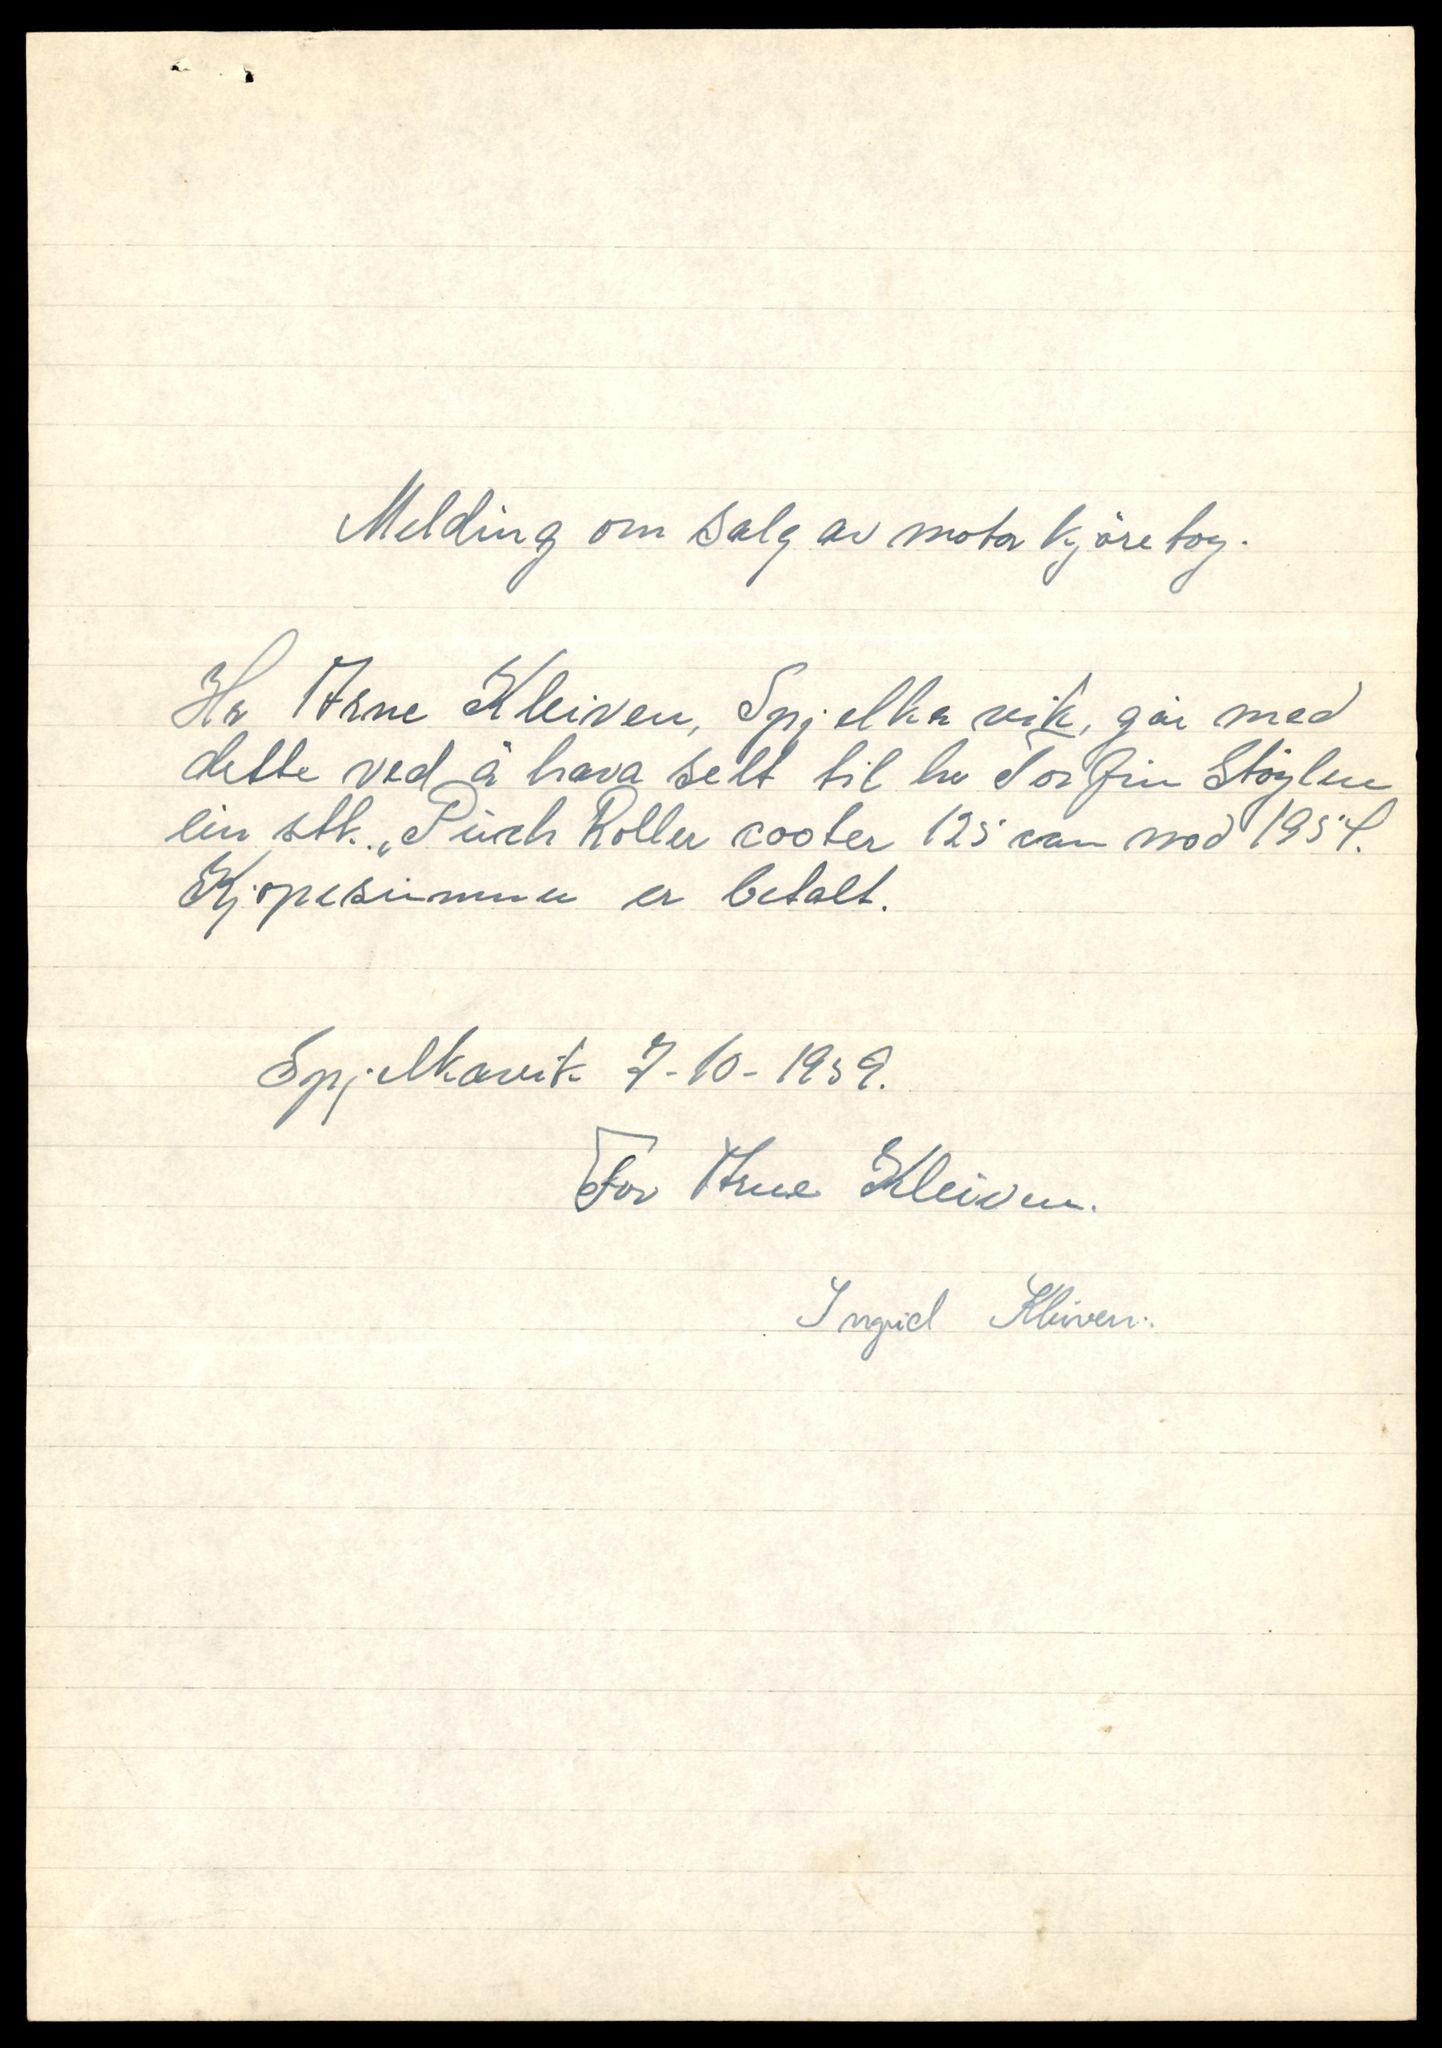 Melding om salg av motor kjöretoy.
Hr Arne Kleiven, Spjelkavik, går med
dette ved å hava selt til hr Torfin Støylen
ein stk. „Püch Roller cooter 125 ccm mod 1954.
Kjøpesummen er betalt.
Spjelkavik 7-10-1959.
For Arne Kleiven.
Ingrid Kleiven.